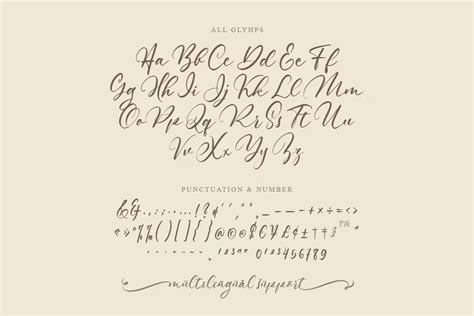 ALL GLYHPS
Aa Bb Cc Dd Ee Ff
Gg Hh Ii Jj Kk Ll Mm
Oo Pp Qq Rr Ss Tt Uu
Vv Xx Yy Zz
PUNCTUATION & NUMBER
&.,:;...!?¿ - – — + × ÷ = <>
%‰()[]{}@©®$€¥£†‡
0123456789
multilingual support